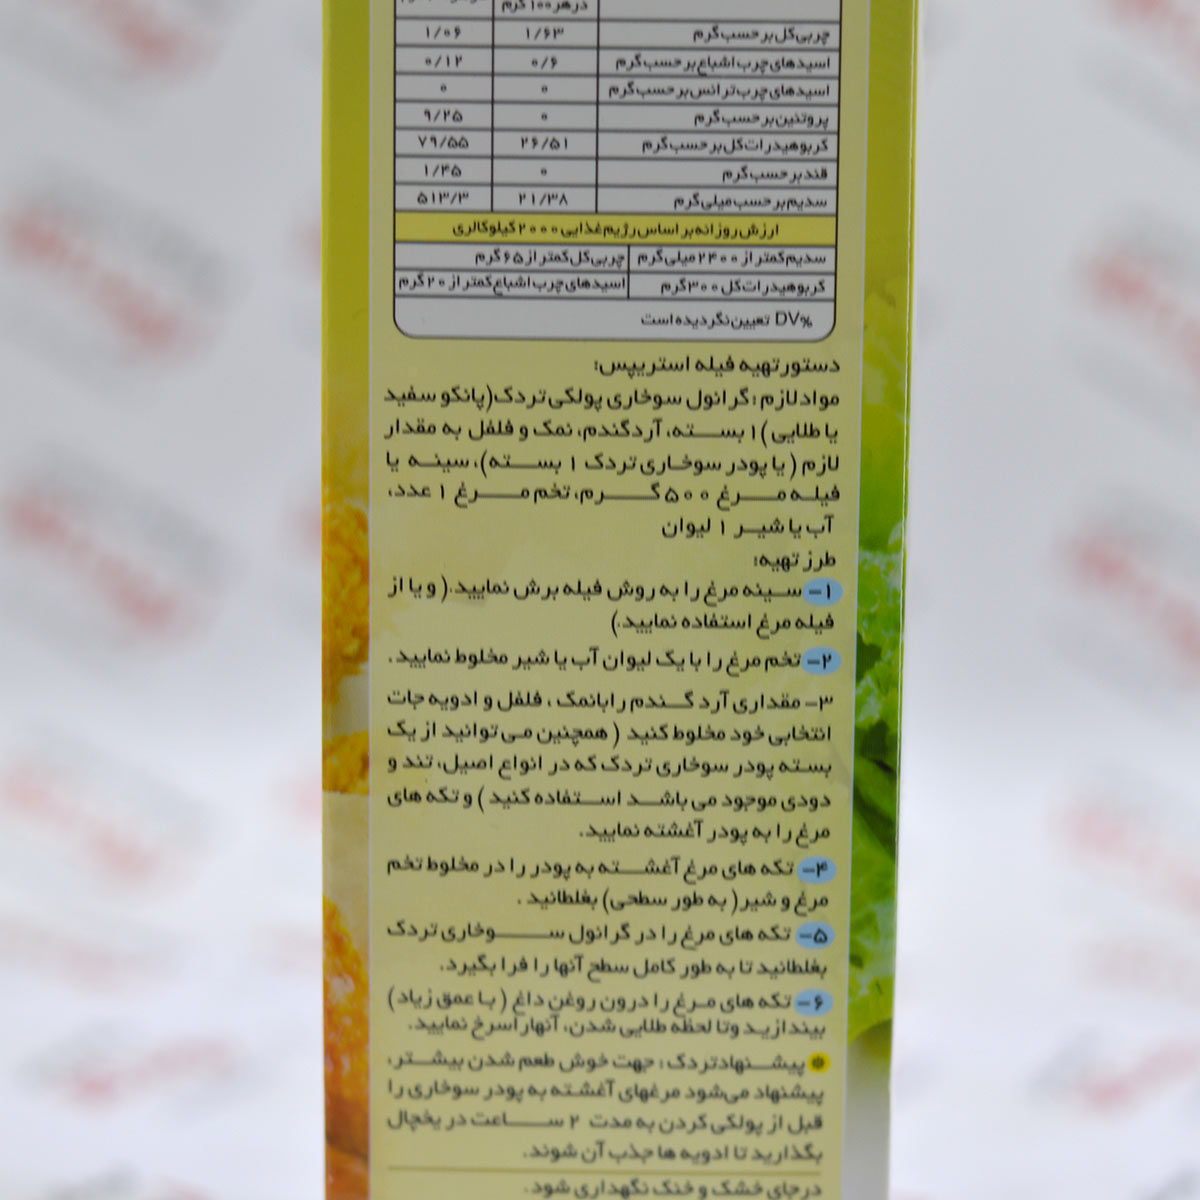 در هر ۱۰۰ گرم
چربی کل بر حسب گرم ۱/۶۳ ۱/۰۶
اسیدهای چرب اشباع بر حسب گرم ۰/۶ ۰/۱۲
اسیدهای چرب ترانس بر حسب گرم ۰ ۰
پروتئین بر حسب گرم ۰ ۹/۲۵
کربوهیدرات کل بر حسب گرم ۲۶/۵۱ ۷۹/۵۵
قند بر حسب گرم ۰ ۱/۴۵
سدیم بر حسب میلی گرم ۲۱/۳۸ ۵۱۳/۳
ارزش روزانه بر اساس رژیم غذایی ۲۰۰۰ کیلوکالری
سدیم کمتر از ۲۴۰۰ میلی گرم چربی کل کمتر از ۶۵ گرم
کربوهیدرات کل ۳۰۰ گرم اسیدهای چرب اشباع کمتر از ۲۰ گرم
%DV تعیین نگردیده است
دستور تهیه فیله استریپس:
مواد لازم: گرانول سوخاری پولکی تردک (پانکو سفید
یا طلایی) ۱ بسته، آرد گندم، نمک و فلفل به مقدار
لازم (یا پودر سوخاری تردک ۱ بسته)، سینه یا
فیله مرغ ۵۰۰ گرم، تخم مرغ ۱ عدد،
آب یا شیر ۱ لیوان
طرز تهیه:
۱- سینه مرغ را به روش فیله برش نمایید. (و یا از
فیله مرغ استفاده نمایید.)
۲- تخم مرغ را با یک لیوان آب یا شیر مخلوط نمایید.
۳- مقداری آرد گندم را با نمک، فلفل و ادویه جات
انتخابی خود مخلوط کنید (همچنین می توانید از یک
بسته پودر سوخاری تردک که در انواع اصیل، تند و
دودی موجود می باشد استفاده کنید) و تکه های
مرغ را به پودر آغشته نمایید.
۴- تکه های مرغ آغشته به پودر را در مخلوط تخم
مرغ و شیر (به طور سطحی) بغلطانید.
۵- تکه های مرغ را در گرانول سوخاری تردک
بغلطانید تا به طور کامل سطح آنها را فرا بگیرد.
۶- تکه های مرغ را درون روغن داغ (با عمق زیاد)
بیندازید و تا لحظه طلایی شدن، آنها را سرخ نمایید.
پیشنهاد تردک: جهت خوش طعم شدن بیشتر،
پیشنهاد می‌شود مرغهای آغشته به پودر سوخاری را
قبل از پولکی کردن به مدت ۲ ساعت در یخچال
بگذارید تا ادویه ها جذب آن شوند.
در جای خشک و خنک نگهداری شود.